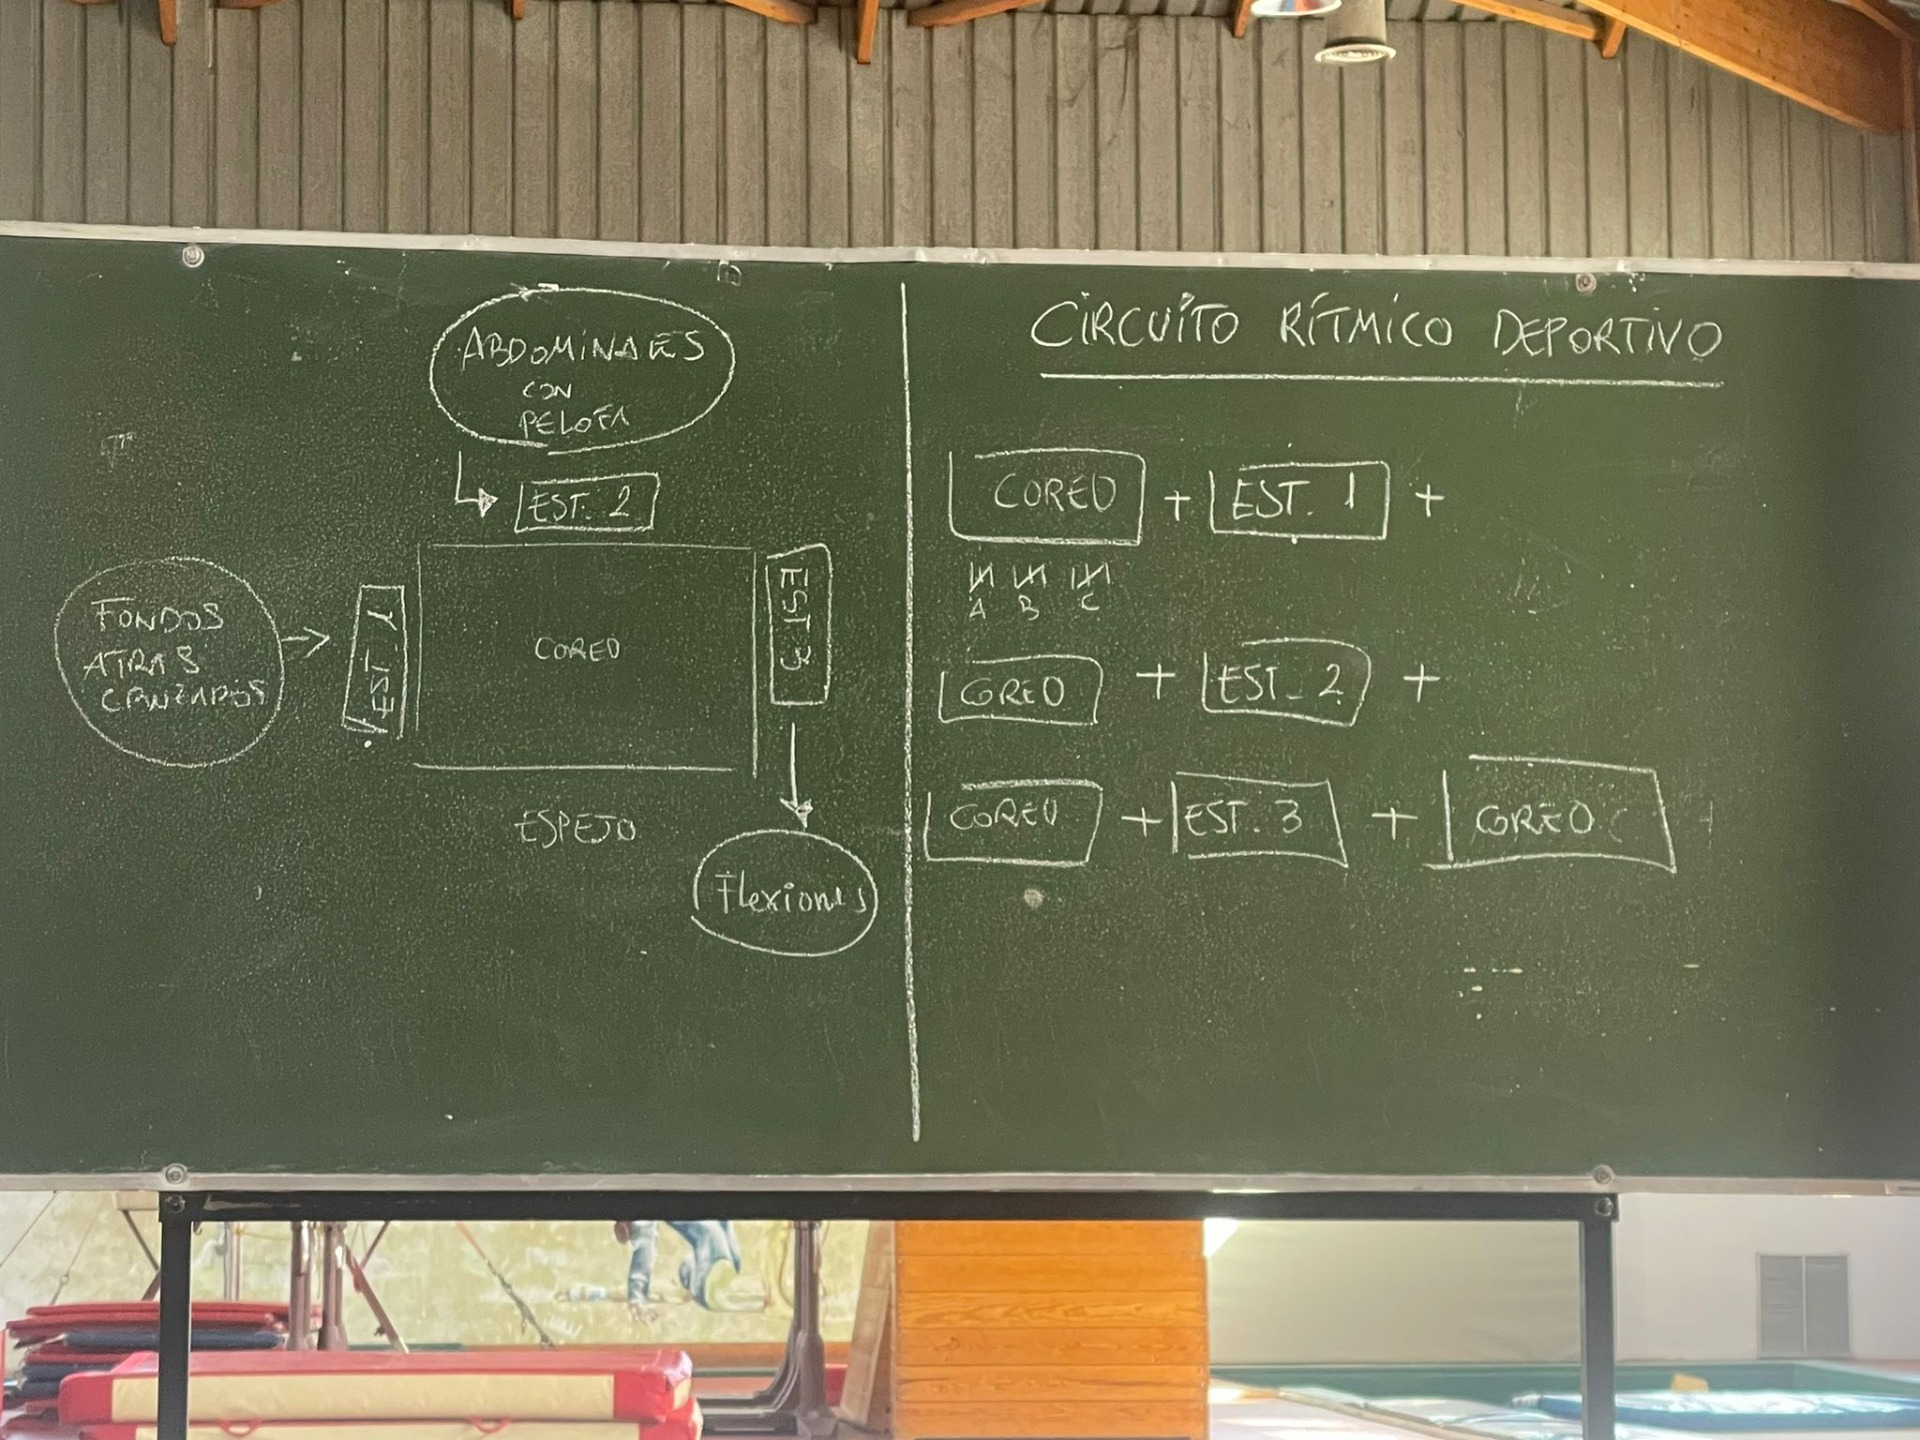 ABDOMINALES
CON
PELOTA
EST. 2
FONDOS
ATRAS
CRUZADOS
EST. 1
COREO
EST. 3
ESPEJO
Flexiones
CIRCUITO RÍTMICO DEPORTIVO
COREO + EST. 1 +
A B C
COREO + EST. 2 +
COREO + EST. 3 + COREO